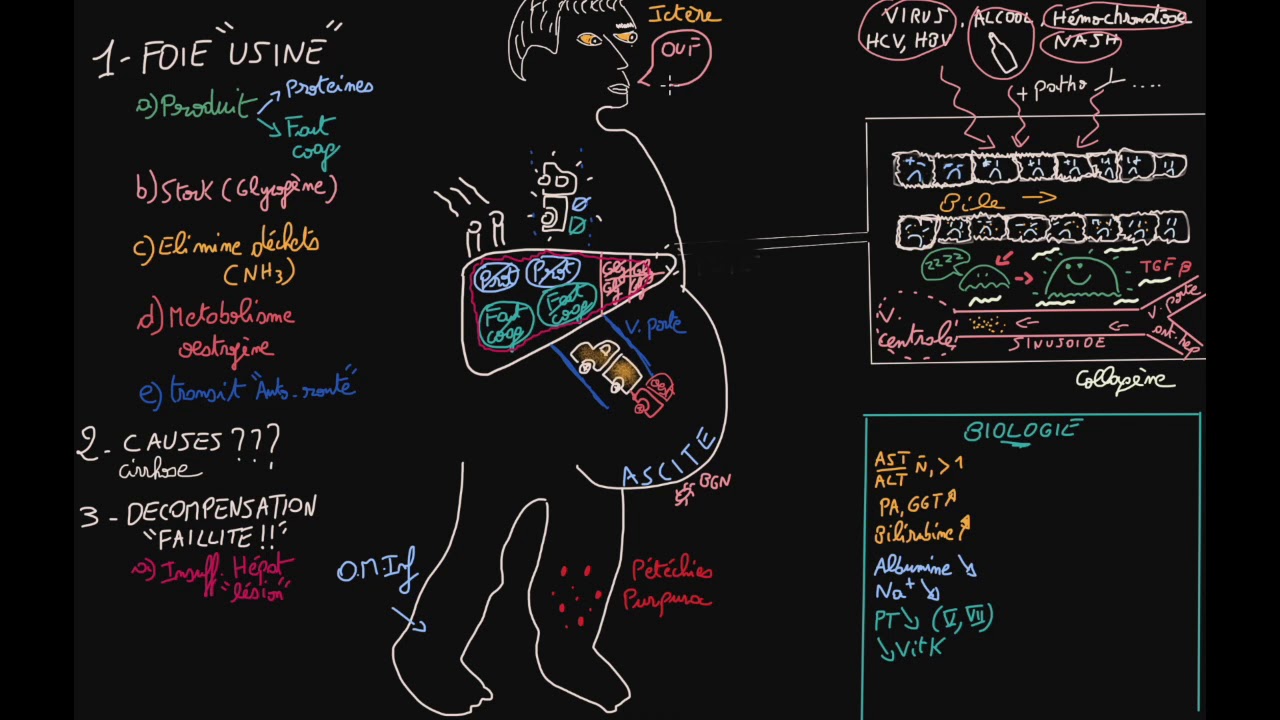 1- FOIE "USINE"
a) Produit
Protéines
Fact
coag
b) Stock (Glycogène)
c) Elimine déchets
(NH3)
d) Métabolisme
oestrogène
e) transit "Auto-route"
2- CAUSES ???
cirrhose
3- DECOMPENSATION
"FAILLITE!!"
a) Insuff. Hépat
"lésion"
Ictère
OUF
Prot
Prot
Fact
coag
Fact
coag
V. porte
ASCITE
BGN
O.M.Inf
Pétéchies
Purpura
VIRUS
HCV, HBV
ALCOOL
Hémochromatose
NASH
+ patho ....
Bile
zzzz
TGF β
V.
centrale
SINUSOIDE
V. porte
art. hep
Collagène
BIOLOGIE
AST
ALT
N, >1
PA, GGT ↗
Bilirubine ↗
Albumine ↘
Na+ ↘
PT ↘ (V, VII)
↘ Vit K